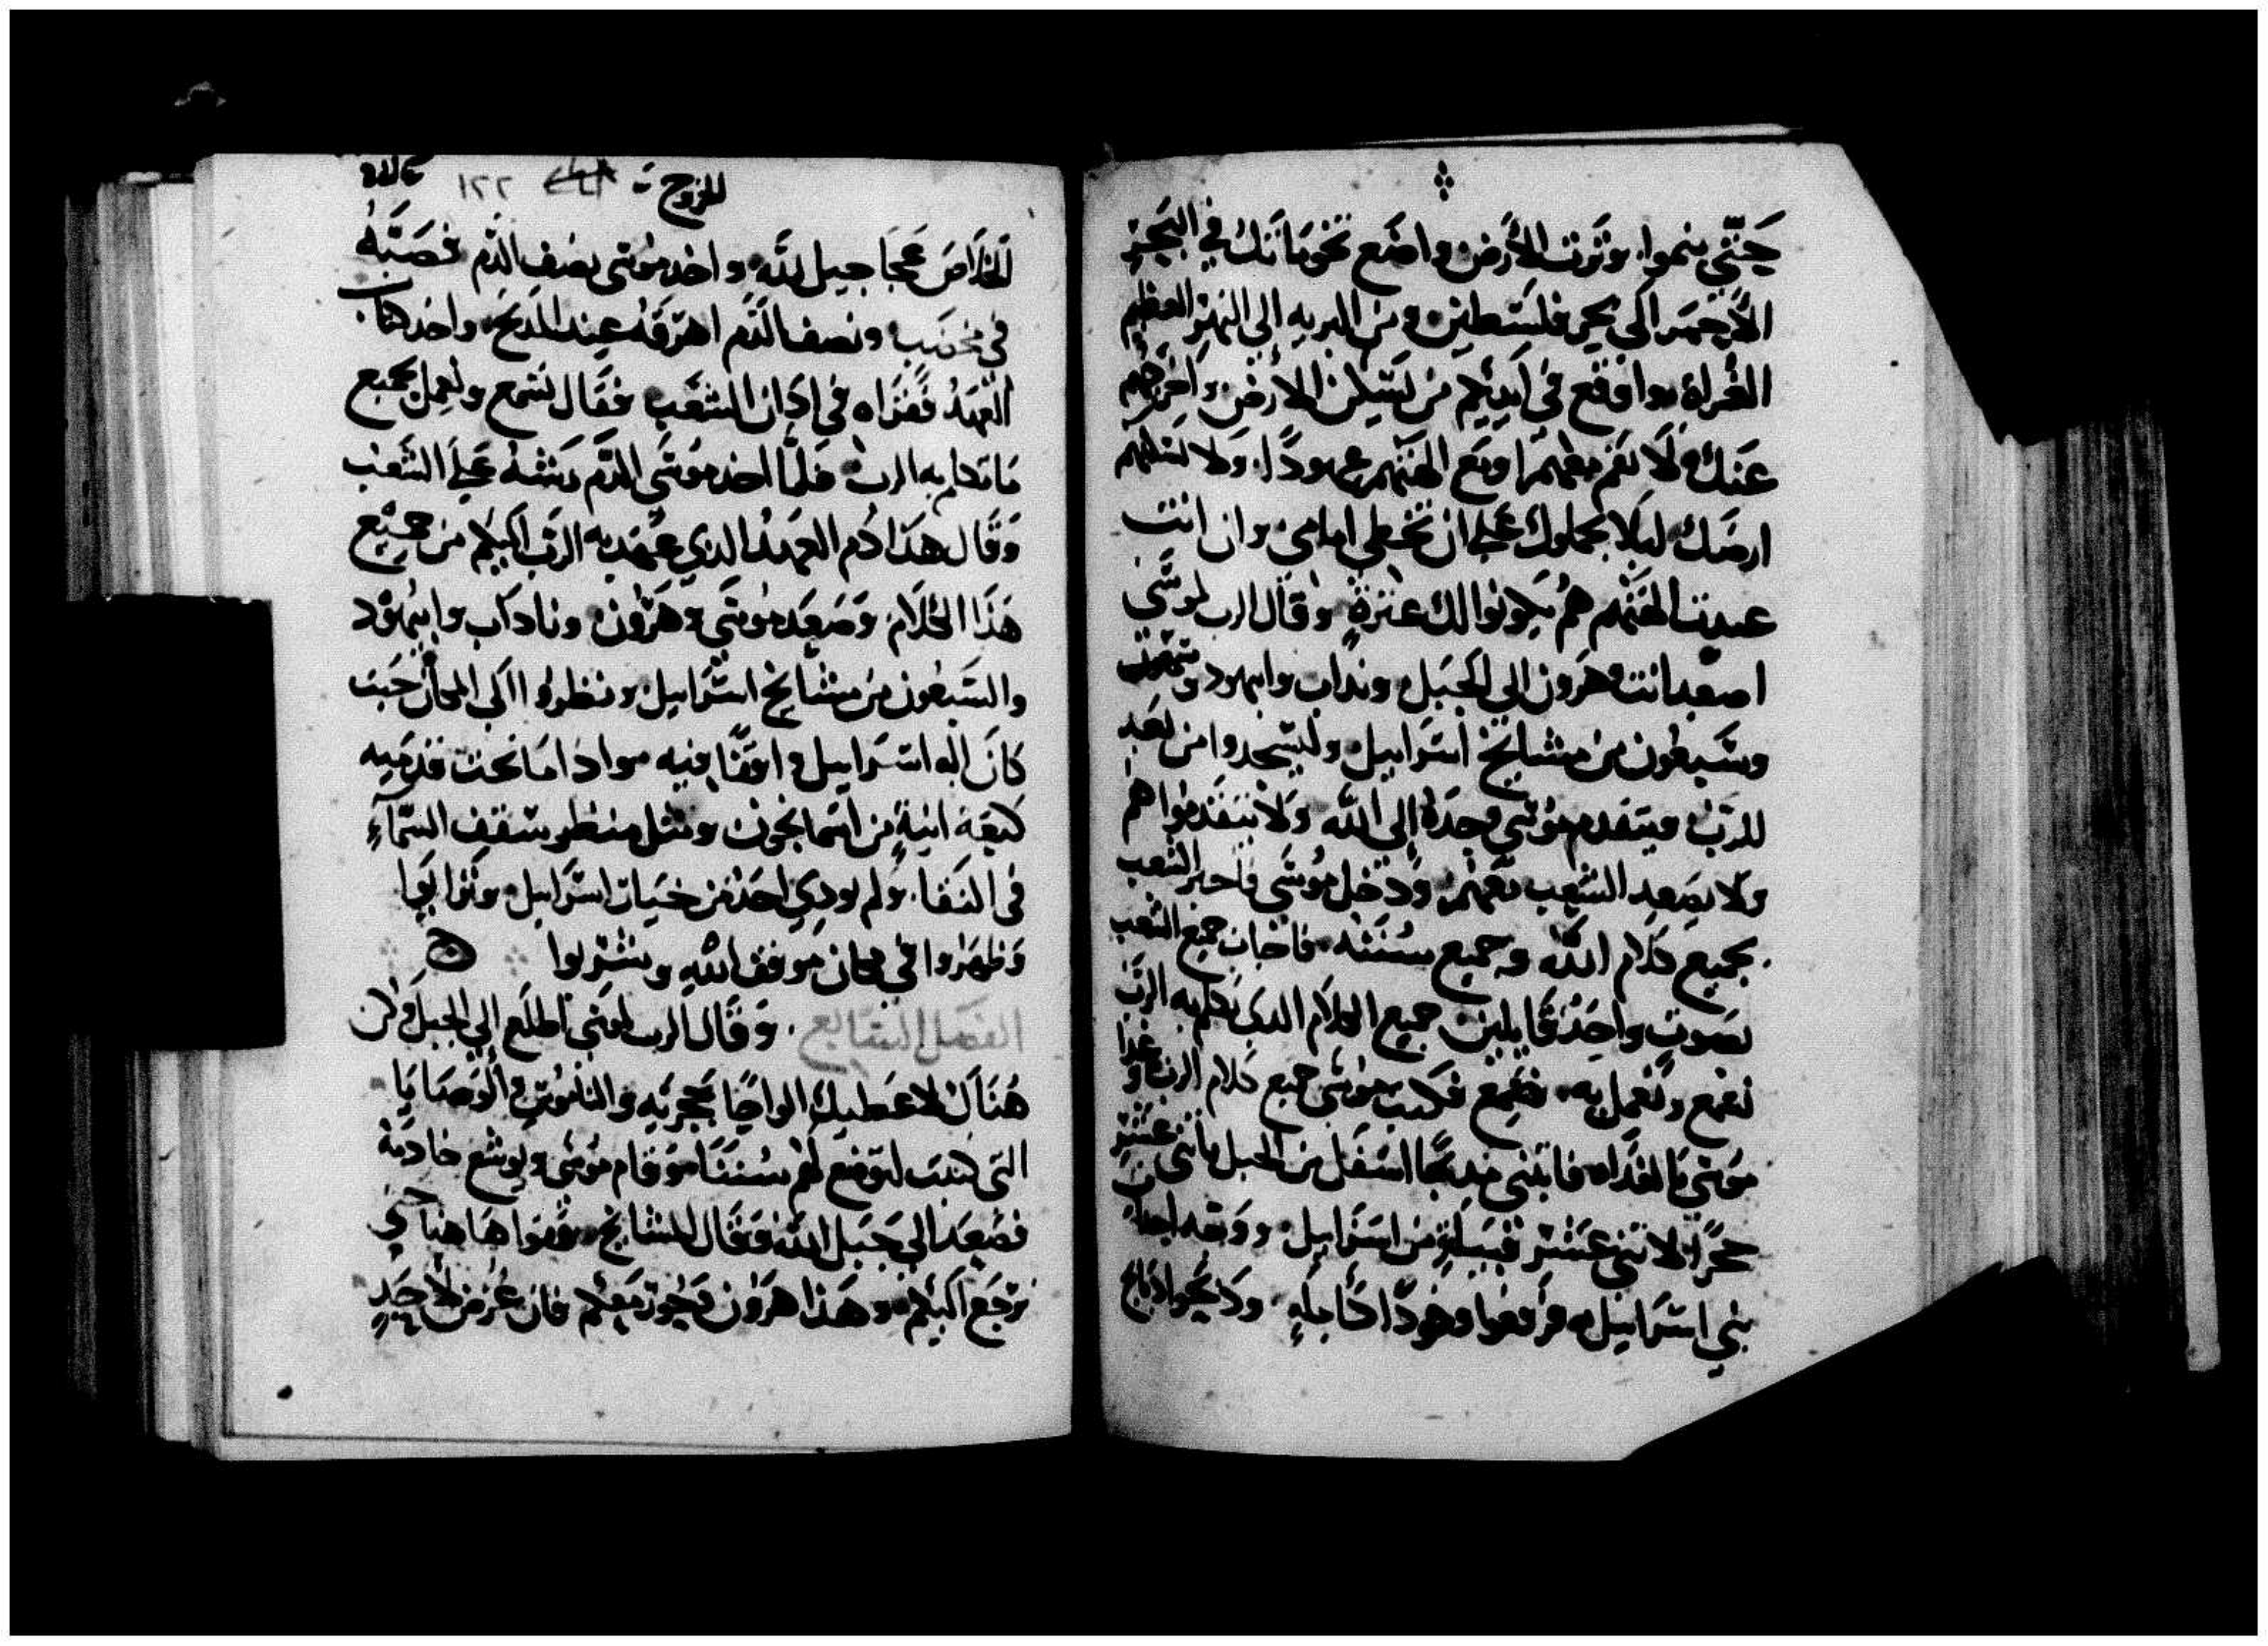 حتى ينموا وترت الارض واضع تخوماتك في البحر
الاحمر الى بحر فلسطين ومن البريه الى النهر العظيم
الفراة واوقع في ايديكم من يسكن الارض واخرجهم
عنك ولا تقم معهم ومع الهتهم عهودا ولا تسكنهم
ارضك ليلا يجعلوك على ان تخطي امامي وان انت
عبدت الهتهم هم يكونوا لك عثرة وقال الرب لموسى
اصعد انت وهرون الى الجبل وناداب وابيهود
وسبعون من مشايخ اسرائيل وليسجدوا من بعد
للرب ويتقدم موسى وحده الى الله ولا يتقدموا هم
ولا يصعد الشعب معهم ودخل موسى فاخبر الشعب
بجميع كلام الله وجميع سننه فاجاب جميع الشعب
بصوت واحد قايلين جميع الكلام الدي تكلم به الرب
نسمع ونعمل به فكتب موسى جميع كلام الرب
موسى بالغداه فابتنى مدبحا اسفل من الجبل باثنى عشر
حجرا لاثني عشر قبيلة من اسرائيل
بني اسرائيل فرفعوا وقودا كاملة
للخروج ١٢٢
الخلاص عجاجيل لله واخد موسى نصف الدم فصبه
في مخضب ونصف الدم اهرقه عند المدبح واخد كتاب
العهد فقراه في ادان الشعب فقال نسمع ونعمل بجميع
ما تكلم به الرب فلما اخد موسى الدم رشه على الشعب
وقال هذا دم العهد الدي عهد به الرب اليكم من جميع
هذا الكلام وصعد موسى وهرون وناداب وابيهود
والسبعون من مشايخ اسرائيل ونظروا الى المكان حيث
كان اله اسرائيل واقفا فيه وادا ما تحت قدميه
كيقه انية من اسمانجون ومثل منظر سقف السماء
في النقا ولم يودي احد من خيار اسرائيل وترايوا
وظهروا في مكان موقف الله وشربوا
الفصل السابع وقال الرب لموسى اطلع الى الجبل وكن
هناك لاعطيك الواحا حجريه والناموس والوصايا
التي كتبت لتوضع لهم سننا وقام موسى ويوشع خادمه
فصعد الى جبل الله وقال للمشايخ قفوا هاهنا حتى
نرجع اليكم وهذا هرون وحور معكم فان عرض لاحد